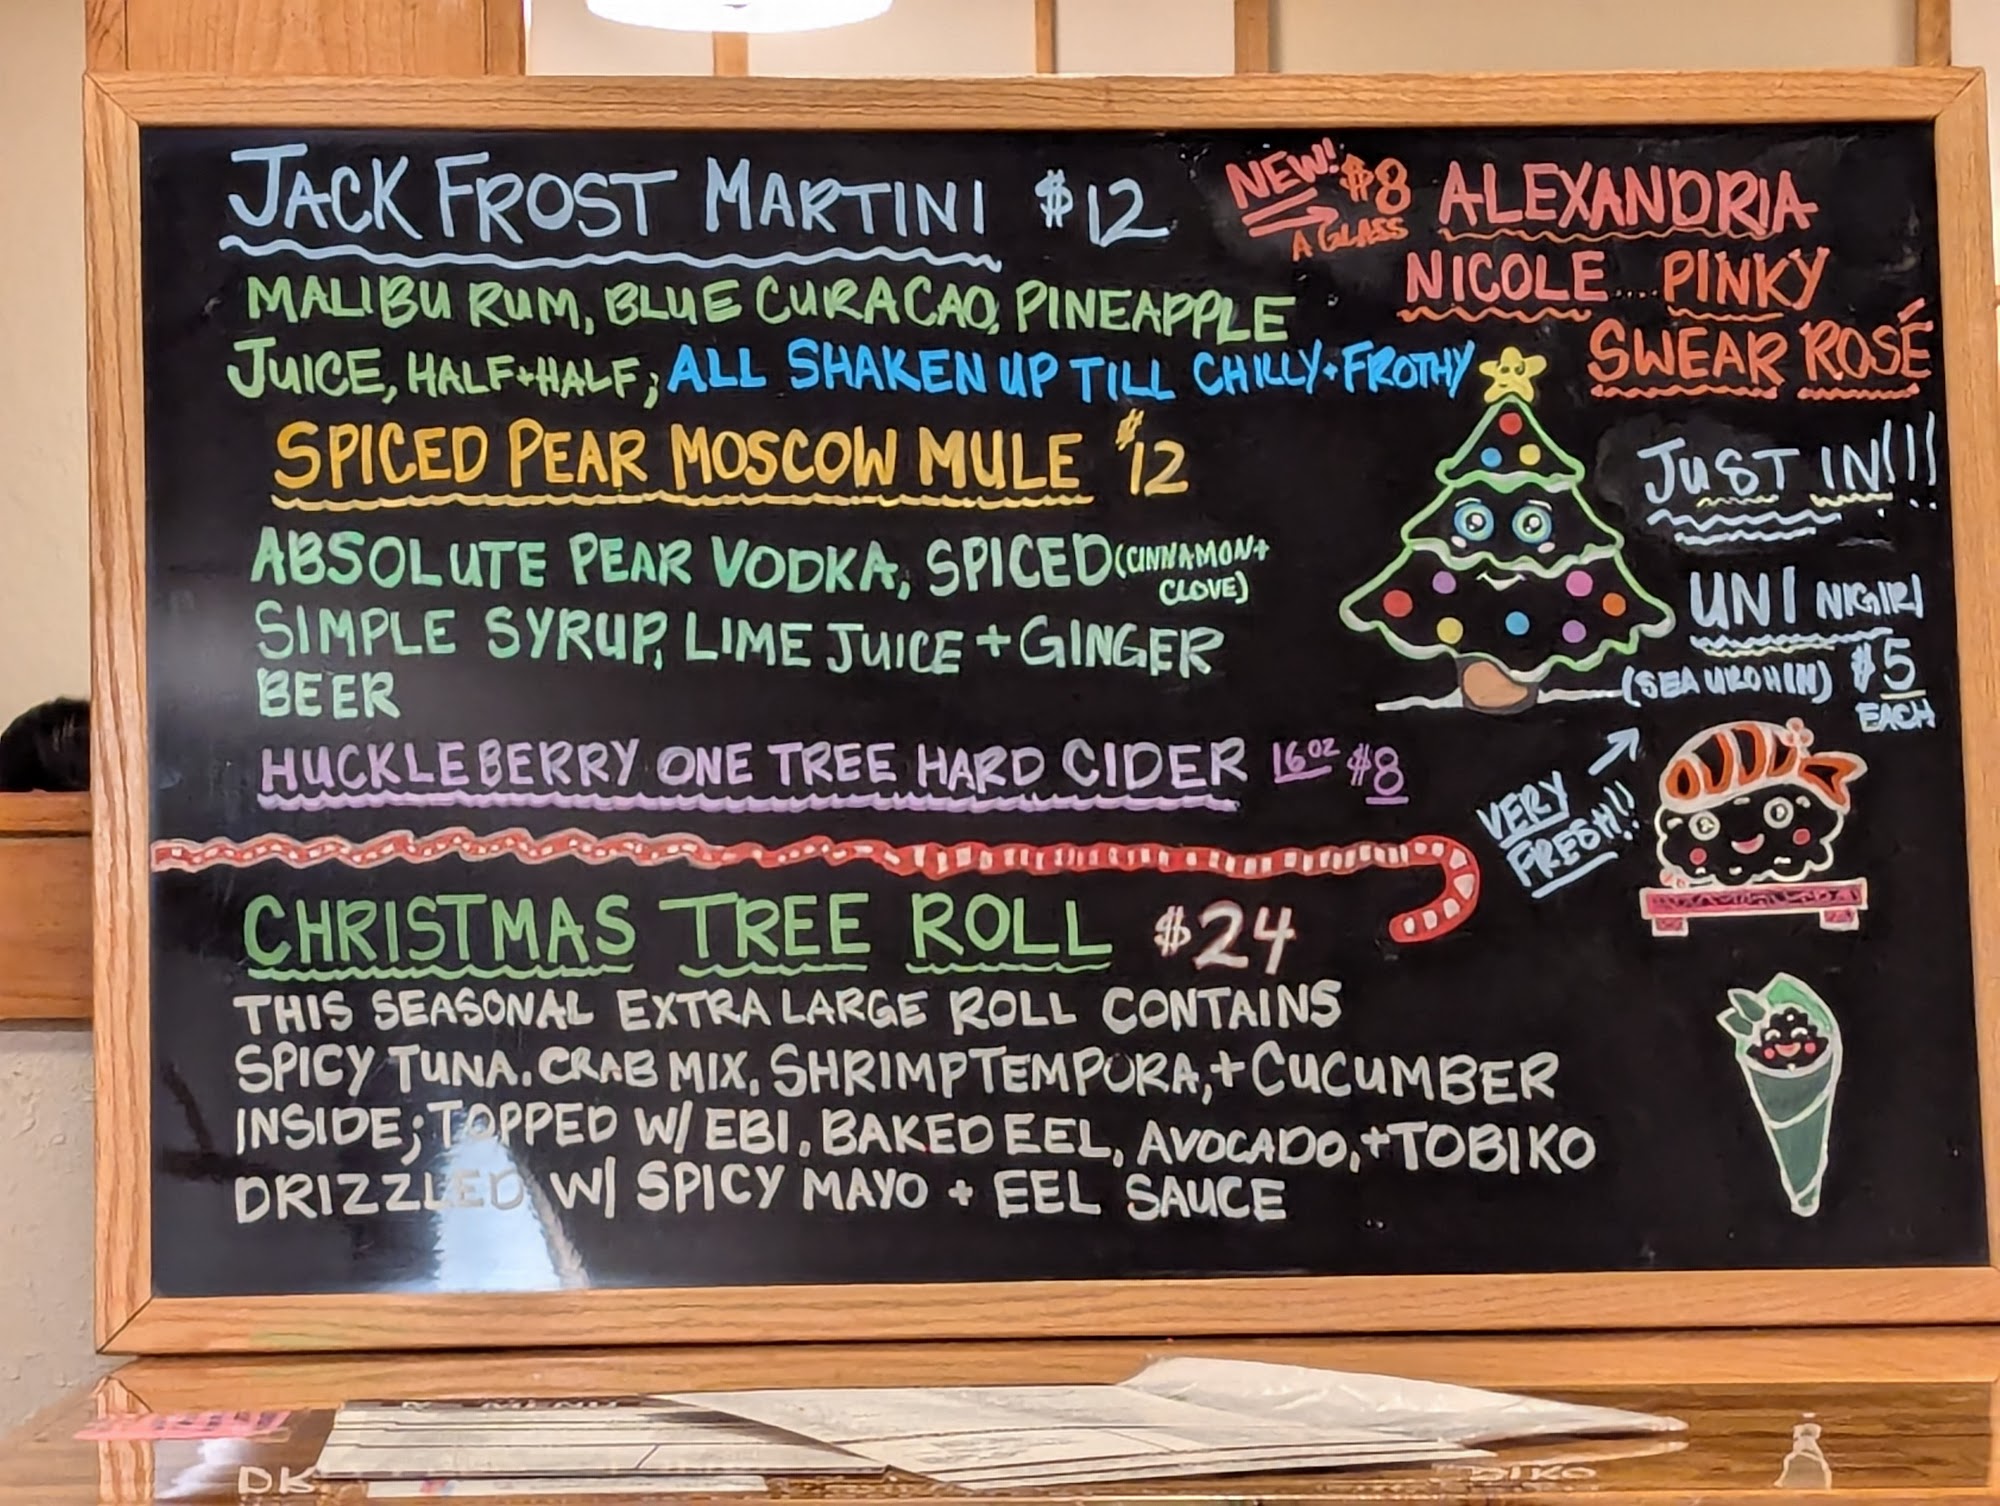 JACK FROST MARTINI $12
MALIBU RUM, BLUE CURACAO, PINEAPPLE
JUICE, HALF+HALF; ALL SHAKEN UP TILL CHILLY+FROTHY
SPICED PEAR MOSCOW MULE $12
ABSOLUTE PEAR VODKA, SPICED (CINNAMON+
CLOVE)
SIMPLE SYRUP, LIME JUICE + GINGER
BEER
HUCKLEBERRY ONE TREE HARD CIDER 16oz $8
NEW! $8
A GLASS
ALEXANDRIA
NICOLE PINKY
SWEAR ROSÉ
JUST IN!!!
UNI NIGIRI
(SEA URCHIN) $5
EACH
VERY
FRESH!!
CHRISTMAS TREE ROLL $24
THIS SEASONAL EXTRA LARGE ROLL CONTAINS
SPICY TUNA, CRAB MIX, SHRIMP TEMPURA, + CUCUMBER
INSIDE; TOPPED W/ EBI, BAKED EEL, AVOCADO, + TOBIKO
DRIZZLED W/ SPICY MAYO + EEL SAUCE
MENU